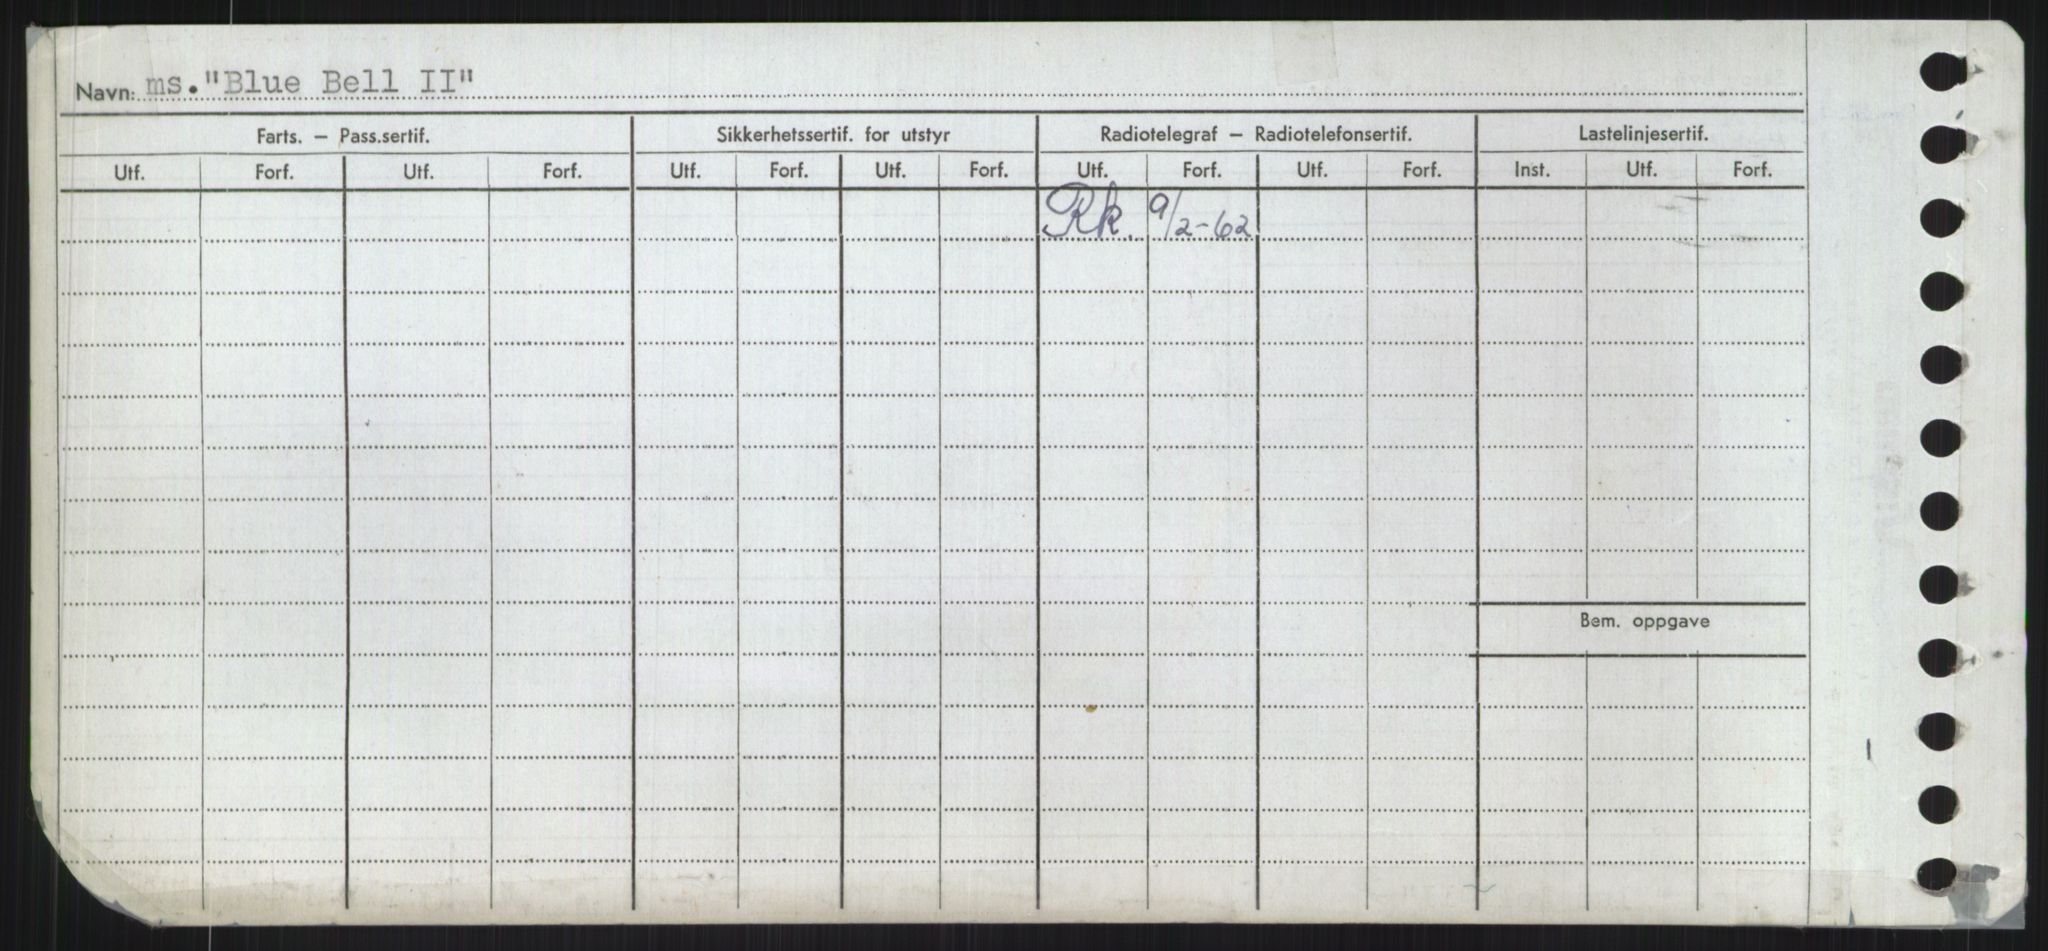 Navn: ms. "Blue Bell II"
Farts. – Pass.sertif. Sikkerhetssertif. for utstyr Radiotelegraf – Radiotelefonsertif. Lastelinjesertif.
Utf. Forf. Utf. Forf. Utf. Forf. Utf. Forf. Utf. Forf. Utf. Forf. Inst. Utf. Forf.
Rk. 9/2-62
Bem. oppgave